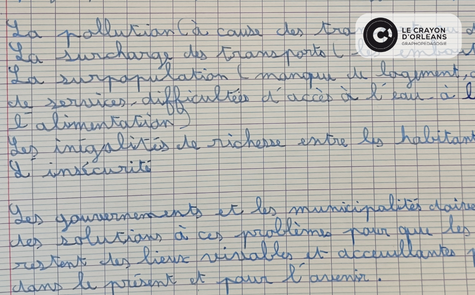 La pollution (à cause des
LE CRAYON
D'ORLÉANS
GRAPHOPÉDAGOGIE
La surcharge des transports (
La surpopulation (manque de logement,
de services, difficultées d'accès à l'eau, à
l'alimentation)
Les inégalités de richesse entre les
L'insécurité
Les gouvernements et les municipalités
des solutions à ces problèmes pour que les
restent des lieux vivables et acceuillantes
dans le présent et pour l'avenir.